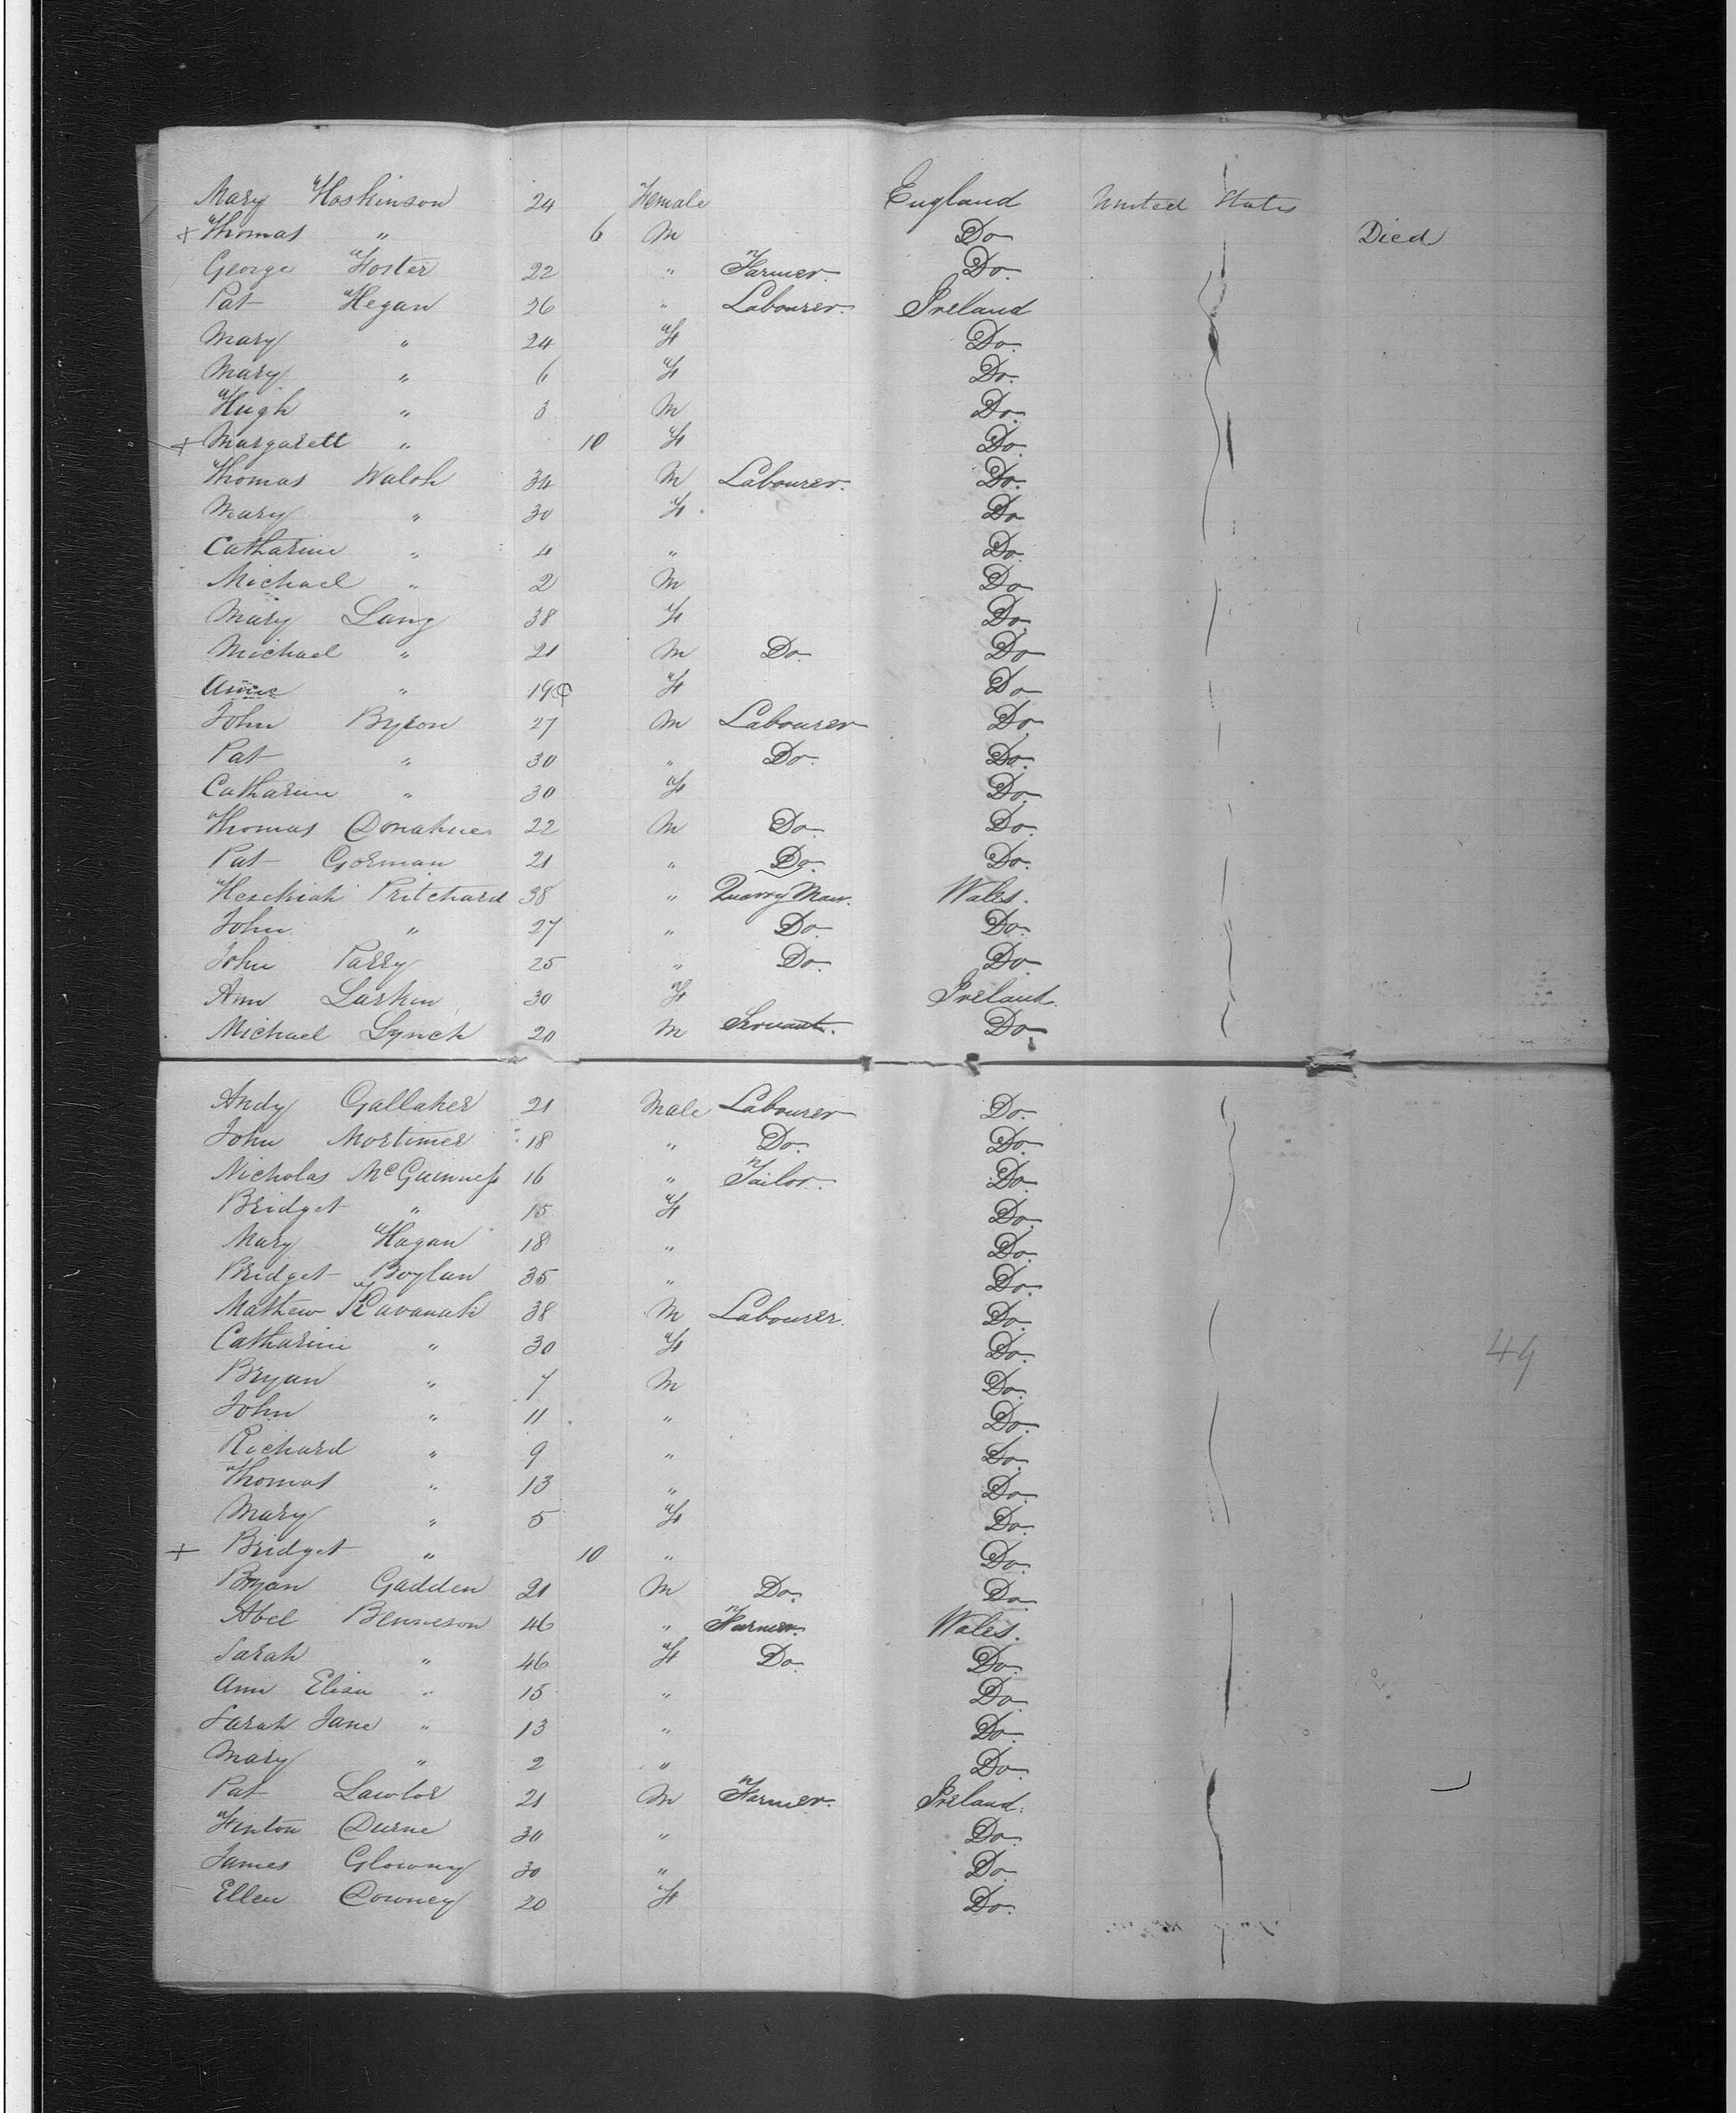 Mary Hoskinson 24 Female England United States
+ Thomas " 6 M Do Died
George Foster 22 " Farmer. Do.
Pat Hegan 26 " Labourer. Ireland
Mary " 24 F Do.
Mary " 6 F Do.
Hugh " 3 M Do.
+ Margarett " 10 F Do.
Thomas Walsh 34 M Labourer. Do.
Mary " 30 F. Do
Catharine " 4 " Do
Michael " 2 M Do
Mary Lang 38 F Do.
Michael " 21 M Do. Do
Annie " 19 F Do
John Byron 27 M Labourer Do
Pat " 30 " Do. Do.
Catharine " 30 F Do.
Thomas Donahue 22 M Do. Do.
Pat Gorman 21 " Do. Do.
Heschiah Pritchard 38 " Quarry Man. Wales.
John " 27 " Do. Do.
John Parry 25 " Do. Do
Ann Larkin 30 F Ireland.
Michael Lynch 20 M Servant. Do
Andy Gallaher 21 Male Labourer Do.
John Mortimer 18 " Do. Do.
Nicholas McGuinness 16 " Tailor. Do.
Bridget " 15 F Do.
Mary Hagan 18 " Do.
Bridget Boylan 35 " Do.
Mathew Kavanah 38 M Labourer. Do.
Catharine " 30 F Do.
Bryan " 7 M Do.
John " 11 " Do.
Richard " 9 " Do.
Thomas " 13 " Do.
Mary " 5 F Do.
+ Bridget " 10 " Do.
Bryan Gadden 21 M Do. Do.
Abel Benneson 46 " Farmer. Wales.
Sarah " 46 F Do. Do.
Ann Eliza " 15 " Do
Sarah Jane " 13 " Do.
Mary " 2 " Do.
Pat Lawlor 21 M Farmer. Ireland.
Finton Durne 30 " Do.
James Glowny 30 " Do.
Ellen Downey 20 F Do.
49